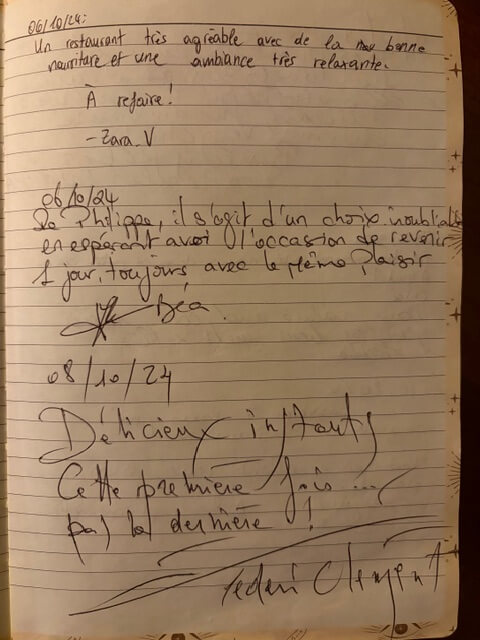 06/10/24:
Un restaurant très agréable avec de la bonne
nourriture et une ambiance très relaxante.
À refaire!
- Zara. V
06/10/24
De Philippe, il s'agit d'un choix inoubliable
en espérant avoi l'occasion de revenir
1 jour, toujours avec le même plaisir
Béa.
08/10/24
Délicieux instants
Cette première fois ...
pas la dernière !
Clément